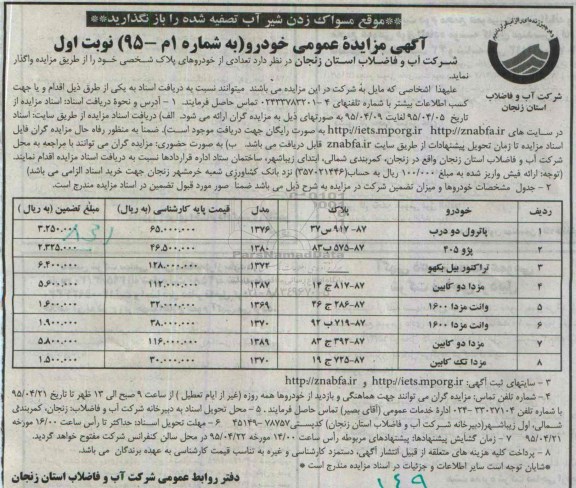 **موقع مسواک زدن شیر آب تصفیه شده را باز نگذارید**
آگهی مزایدهٔ عمومی خودرو(به شماره ۱م -۹۵) نوبت اول
شرکت آب و فاضلاب استان زنجان
شرکت آب و فاضلاب استان زنجان در نظر دارد تعدادی از خودروهای پلاک شخصی خود را از طریق مزایده واگذار
نماید.
علیهذا اشخاصی که مایل به شرکت در این مزایده می باشند میتوانند نسبت به دریافت اسناد به یکی از طرق ذیل اقدام و یا جهت
کسب اطلاعات بیشتر با شماره تلفنهای ۴-۰۲۴۳۳۷۸۳۳۰۱ تماس حاصل فرمایند. ۱ - آدرس و نحوة دریافت اسناد: اسناد مزایده از
تاریخ ۹۵/۰۴/۰۵ لغایت ۹۵/۰۴/۰۹ به صورتهای ذیل به مزایده گران ارائه می شود. الف) دریافت اسناد مزایده از طریق سایت: اسناد
در سایت های http://iets.mporg.ir http://znabfa.ir به صورت رایگان جهت دریافت موجود است). ضمناً به منظور رفاه حال مزایده گران فایل
اسناد مزایده تا زمان تحویل پیشنهادات از طریق سایت znabfa.ir قابل دریافت می باشد. ب) به صورت حضوری: مزایده گران می توانند با مراجعه به محل
شرکت آب و فاضلاب استان زنجان واقع در زنجان، کمربندی شمالی، ابتدای زیباشهر، ساختمان ستاد اداره قراردادها نسبت به دریافت اسناد مزایده اقدام نمایند.
(توجه: ارائه فیش واریز شده به مبلغ ۱۰۰/۰۰۰ ریال به حساب(۳۵۷۰۲۱۴۴۶) نزد بانک کشاورزی شعبه خرمشهر زنجان جهت خرید اسناد الزامی می باشد)
۲ - جدول مشخصات خودروها و میزان تضمین شرکت در مزایده به شرح ذیل می باشد ضمناً صور مورد قبول تضمین در اسناد مزایده مندرج است.
ردیف خودرو پلاک مدل قیمت پایه کارشناسی (به ریال) مبلغ تضمین (به ریال)
۱ پاترول دو درب ۸۷-۹۱۷ س ۳۷ ۱۳۷۶ ۶۵.۰۰۰.۰۰۰ ۳.۲۵۰.۰۰۰
۲ پژو ۴۰۵ ۸۷-۵۷۵ ب ۸۳ ۱۳۸۰ ۴۶.۵۰۰.۰۰۰ ۲.۳۲۵.۰۰۰
۳ تراکتور بیل بکهو ۱۳۷۲ ۱۲۸.۰۰۰.۰۰۰ ۶.۴۰۰.۰۰۰
۴ مزدا دو کابین ۸۷-۸۱۷ ج ۱۴ ۱۳۸۷ ۱۱۲.۰۰۰.۰۰۰ ۵.۶۰۰.۰۰۰
۵ وانت مزدا ۱۶۰۰ ۸۷-۲۸۶ ج ۴۶ ۱۳۶۹ ۳۲.۰۰۰.۰۰۰ ۱.۶۰۰.۰۰۰
۶ وانت مزدا ۱۶۰۰ ۸۷-۷۱۹ ب ۹۲ ۱۳۷۰ ۳۸.۰۰۰.۰۰۰ ۱.۹۰۰.۰۰۰
۷ مزدا دو کابین ۸۷-۳۹۲ ج ۸۳ ۱۳۸۹ ۱۱۶.۰۰۰.۰۰۰ ۵.۸۰۰.۰۰۰
۸ مزدا تک کابین ۸۷-۷۲۵ ج ۱۹ ۱۳۷۰ ۳۰.۰۰۰.۰۰۰ ۱.۵۰۰.۰۰۰
۳ - سایتهای ثبت آگهی: http://iets.mporg.ir و http://znabfa.ir
۴ - شماره تلفن تماس: مزایده گران می توانند جهت هماهنگی و بازدید از خودروها همه روزه (غیر از ایام تعطیل ) از ساعت ۹ صبح الی ۱۳ ظهر تا تاریخ ۹۵/۰۴/۲۱
با شماره تلفن ۳۳۰۲۷۱۰۴-۰۲۴ ادارة خدمات عمومی (آقای بصیر) تماس حاصل فرمایند. ۵ - محل تحویل اسناد به دبیرخانه شرکت آب و فاضلاب: زنجان، کمربندی
شمالی، اول زیباشهر(دبیرخانه شرکت آب و فاضلاب استان زنجان) کدپستی ۷۸۷۵۷-۴۵۱۴۹ ۶ - مهلت تحویل اسناد: حداکثر تا رأس ساعت ۱۶/۰۰ مورخه
۹۵/۰۴/۲۱ ۷ - زمان گشایش پیشنهادها: پیشنهادهای مربوطه رأس ساعت ۱۴/۰۰ مورخه ۹۵/۰۴/۲۲ در محل سالن کنفرانس شرکت مفتوح خواهد گردید.
۸ - پرداخت کلیه هزینه های متعلقه از قبیل انتشار آگهی، دستمزد کارشناسی و غیره به تناسب قیمت کارشناسی به عهده برندگان می باشد.
*شایان توجه است سایر اطلاعات و جزئیات در اسناد مزایده مندرج است *
دفتر روابط عمومی شرکت آب و فاضلاب استان زنجان